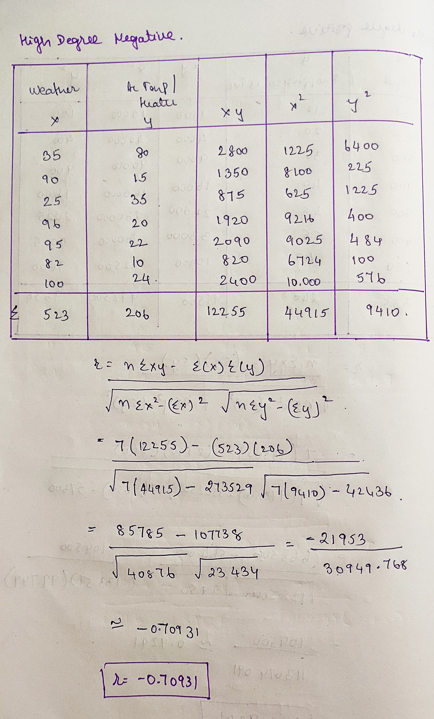 High Degree Negative.
Weather x | Ac Temp / Heater y | xy | x² | y²
35 | 80 | 2800 | 1225 | 6400
90 | 15 | 1350 | 8100 | 225
25 | 35 | 875 | 625 | 1225
96 | 20 | 1920 | 9216 | 400
95 | 22 | 2090 | 9025 | 484
82 | 10 | 820 | 6724 | 100
100 | 24. | 2400 | 10.000 | 576
Σ 523 | 206 | 12255 | 44915 | 9410.
r = nΣxy - Σ(x)Σ(y)
√nΣx²-(Σx)² √nΣy²-(Σy)²
= 7(12255) - (523)(206)
√7(44915) - 273529 √7(9410) - 42436.
= 85785 - 107738 = -21953
√40876 √23434 30949.768
≈ -0.70931
r = -0.70931